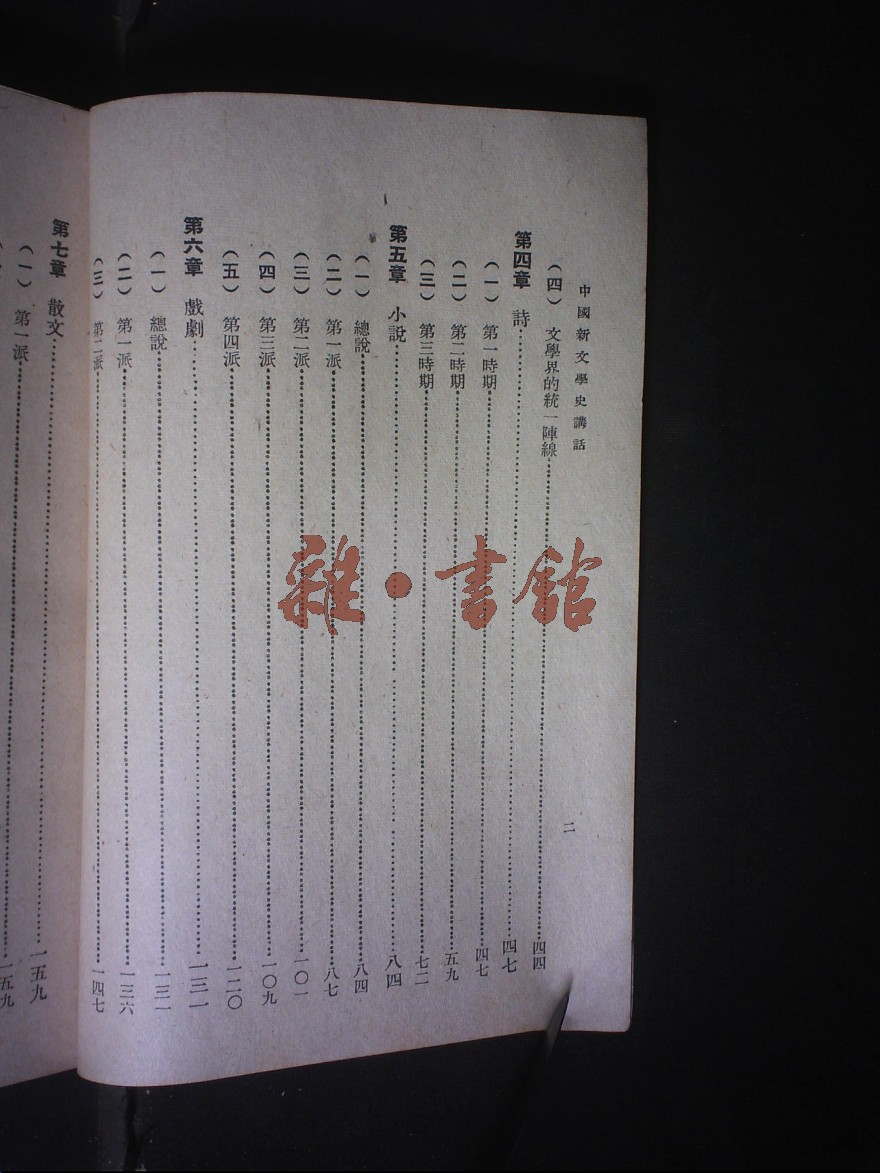 中國新文學史講話
二
（四）文學界的統一陣線……四四
第四章 詩……四七
（一）第一時期……四七
（二）第二時期……五九
（三）第三時期……七二
第五章 小說……八四
（一）總說……八四
（二）第一派……八七
（三）第二派……一〇一
（四）第三派……一〇九
（五）第四派……一二〇
第六章 戲劇……一三一
（一）總說……一三一
（二）第一派……一三六
（三）第二派……一四七
第七章 散文……一五九
（一）第一派……一五九
雜·書館